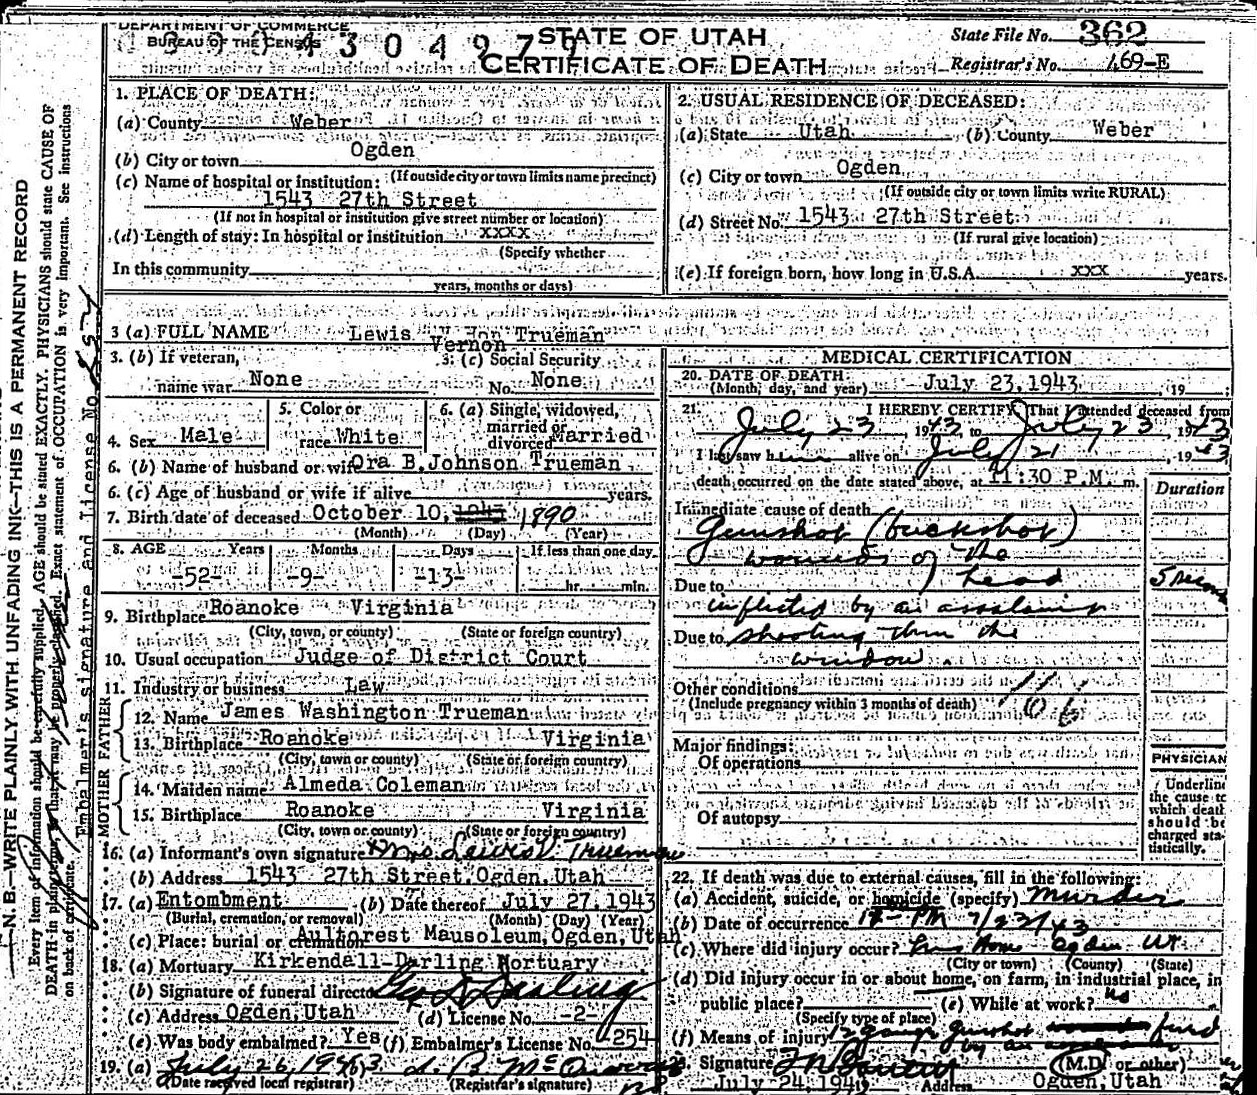 DEPARTMENT OF COMMERCE
BUREAU OF THE CENSUS
3 0 4 9 7 9
STATE OF UTAH
CERTIFICATE OF DEATH
State File No. 362
Registrar's No. 169-E
1. PLACE OF DEATH:
(a) County Weber
(b) City or town Ogden
(If outside city or town limits name precinct)
(c) Name of hospital or institution:
1543 27th Street
(If not in hospital or institution give street number or location)
(d) Length of stay: In hospital or institution xxxx
(Specify whether
In this community
years, months or days)
2. USUAL RESIDENCE OF DECEASED:
(a) State Utah (b) County Weber
(c) City or town Ogden
(If outside city or town limits write RURAL)
(d) Street No. 1543 27th Street
(If rural give location)
(e) If foreign born, how long in U.S.A. xxx years.
3 (a) FULL NAME Lewis Vernon Trueman
3. (b) If veteran,
name war None
3. (c) Social Security
No. None
4. Sex Male
5. Color or
race White
6. (a) Single, widowed,
married or
divorced Married
6. (b) Name of husband or wife Ora B. Johnson Trueman
6. (c) Age of husband or wife if alive years.
7. Birth date of deceased October 10, 1943 1890
(Month) (Day) (Year)
8. AGE Years Months Days If less than one day
-52- -9- -13- hr. min.
9. Birthplace Roanoke Virginia
(City, town, or county) (State or foreign country)
10. Usual occupation Judge of District Court
11. Industry or business Law
FATHER
12. Name James Washington Trueman
13. Birthplace Roanoke Virginia
(City, town or county) (State or foreign country)
MOTHER
14. Maiden name Almeda Coleman
15. Birthplace Roanoke Virginia
(City, town or county) (State or foreign country)
16. (a) Informant's own signature Mrs. Lewis V. Trueman
(b) Address 1543 27th Street, Ogden, Utah
17. (a) Entombment (b) Date thereof July 27, 1943
(Burial, cremation, or removal) (Month) (Day) (Year)
(c) Place: burial or cremation Aultorest Mausoleum, Ogden, Utah
18. (a) Mortuary Kirkendall-Darling Mortuary
(b) Signature of funeral director Geo D Darling
(c) Address Ogden, Utah (d) License No. -2-
(e) Was body embalmed? Yes (f) Embalmer's License No. 254
19. (a) July 26, 1943
(Date received local registrar) (Registrar's signature)
MEDICAL CERTIFICATION
20. DATE OF DEATH:
(Month, day, and year) July 23, 1943, 19 ;
21. I HEREBY CERTIFY, That I attended deceased from
July 23 1943 to July 23, 1943
I last saw him alive on July 21, 1943
death occurred on the date stated above, at 11:30 P.M. m.
Duration
Immediate cause of death
Gunshot (buckshot)
wounds of the
head
Due to
inflicted by an assailant
Due to shooting thru the
window
Other conditions
(Include pregnancy within 3 months of death)
166
Major findings:
Of operations
Of autopsy
PHYSICIAN
Underline
the cause to
which death
should be
charged sta-
tistically.
22. If death was due to external causes, fill in the following:
(a) Accident, suicide, or homicide (specify) Murder
(b) Date of occurrence PM 7/23/43
(c) Where did injury occur? Home Ogden Ut
(City or town) (County) (State)
(d) Did injury occur in or about home, on farm, in industrial place, in
public place? (e) While at work? no
(Specify type of place)
(f) Means of injury 12 gauge gunshot wound fired
by an
Signature (M.D. or other)
July 24, 194 Address Ogden, Utah
N. B.—WRITE PLAINLY WITH UNFADING INK—THIS IS A PERMANENT RECORD
Every item of information should be carefully supplied. AGE should be stated EXACTLY. PHYSICIANS should state CAUSE OF
DEATH in plain terms, so that it may be properly classified. Exact statement of OCCUPATION is very important. See instructions
on back of certificate.
Embalmer's signature and License No.